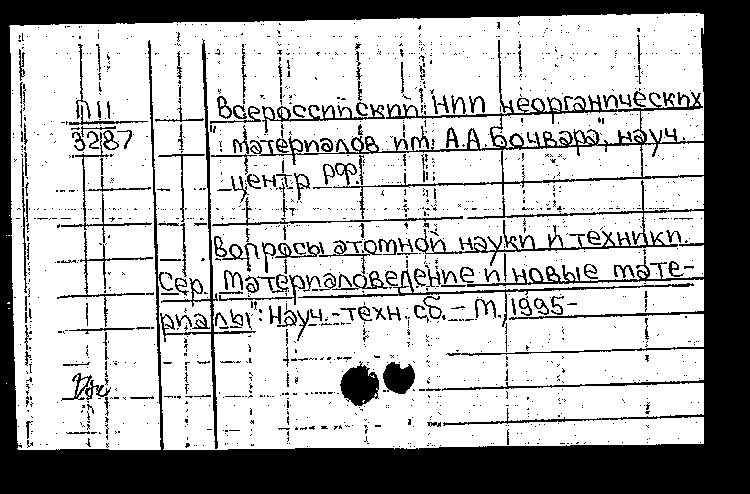 П11
3287
Всероссийский НИИ неорганических
"материалов им. А.А. Бочвара", науч.
центр РФ.
Вопросы атомной науки и техники.
Сер. "Материаловедение и новые мате-
риалы": Науч.-техн. сб. - М., 1995-